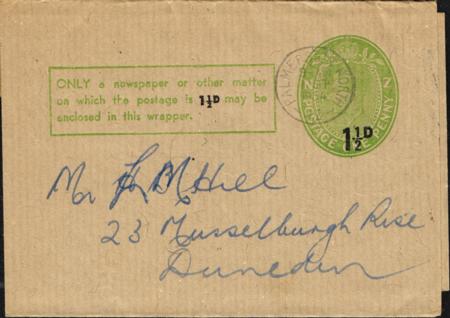 ONLY a newspaper or other matter
on which the postage is 1½D may be
enclosed in this wrapper.
PALMERSTON NORTH
N Z
POSTAGE ONE PENNY
1½D
Mr H McHill
23 Musselburgh Rise
Dunedin